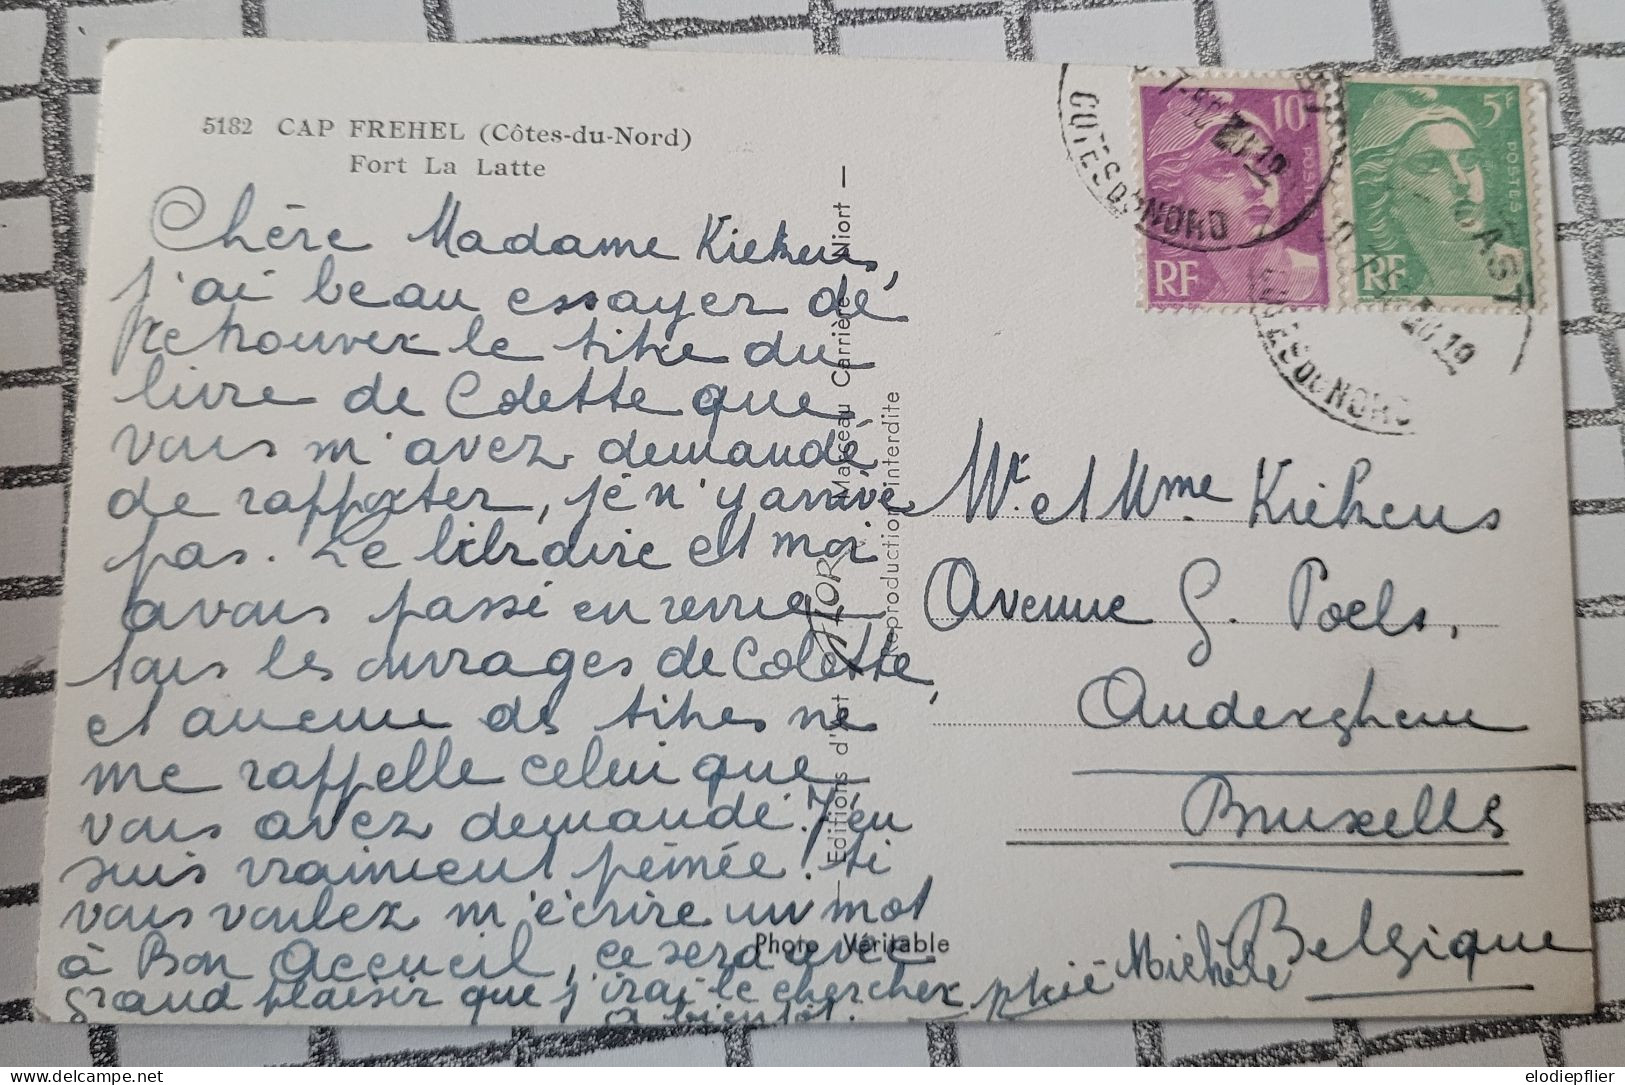 5182 CAP FREHEL (Côtes-du-Nord)
Fort La Latte
Chère Madame Kiekens,
j'ai beau essayer de
retrouver le titre du
livre de Colette que
vous m'avez demandé
de rapporter, je n'y arrive
pas. Le libraire et moi
avons passé en revue
tous les ouvrages de Colette,
et aucun des titres ne
me rappelle celui que
vous avez demandé. J'en
suis vraiment peinée. Si
vous voulez m'écrire un mot
à Bon Accueil, ce sera avec
grand plaisir que j'irai le chercher
à bientôt.
Michèle
Editions d'Art
FLOR
Marceau Carrière - Niort -
Reproduction interdite
Photo Véritable
Mr. et Mme Kiekens
Avenue G. Poels,
Auderghem
Bruxelles
Belgique
10F
POSTES
RF
5F
POSTES
RF
COTES DU NORD
COTES DU NORD
elodiepflier